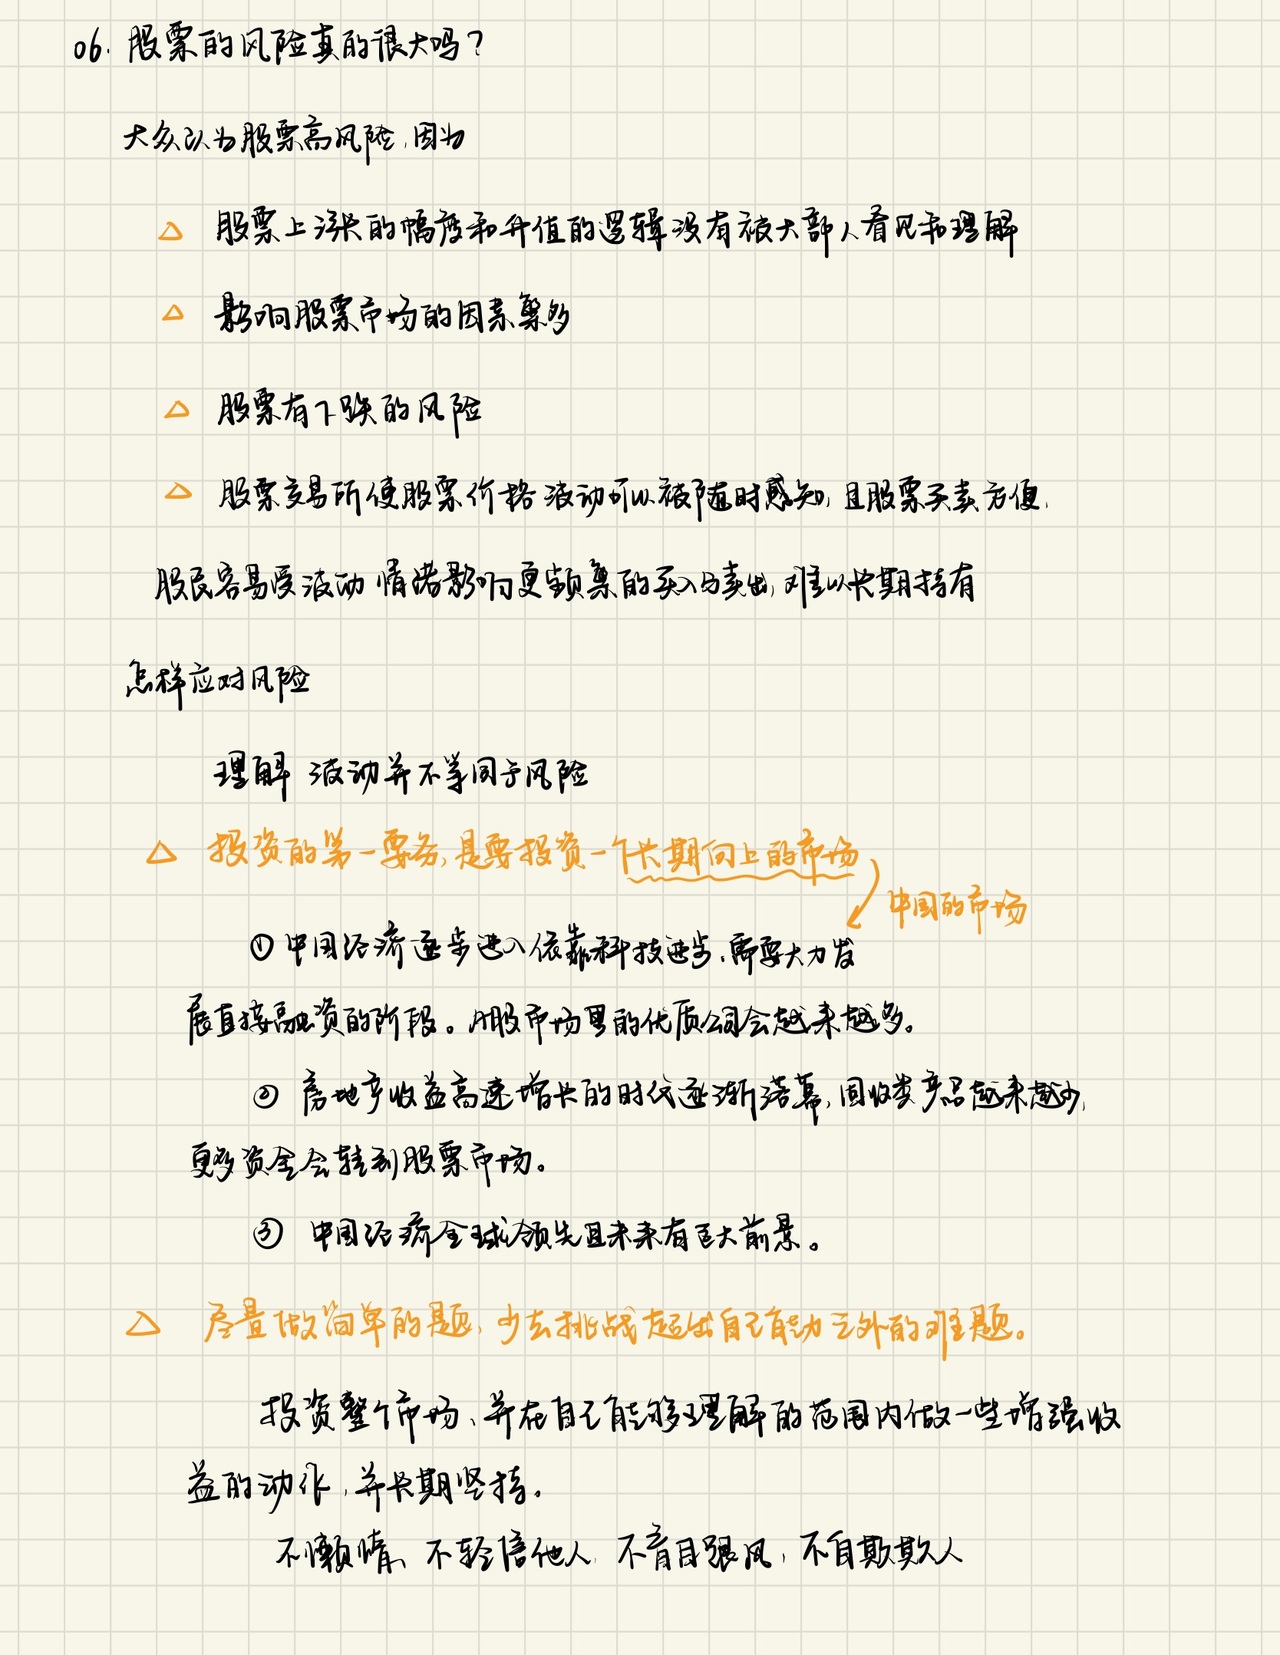 06. 股票的风险真的很大吗？
大众认为股票高风险，因为
△ 股票上涨的幅度和升值的逻辑没有被大部人看见和理解
△ 影响股票市场的因素繁多
△ 股票有下跌的风险
△ 股票交易所使股票价格波动可以被随时感知，且股票买卖方便，
股民容易受波动情绪影响更频繁的买入与卖出，难以长期持有
怎样应对风险
理解 波动并不等同于风险
△ 投资的第一要务，是要投资一个长期向上的市场
中国的市场
① 中国经济逐步进入依靠科技进步，需要大力发
展直接融资的阶段。A股市场里的优质公司会越来越多。
② 房地产收益高速增长的时代逐渐落幕，固收类产品越来越少，
更多资金会转到股票市场。
③ 中国经济全球领先且未来有巨大前景。
△ 尽量做简单的题，少去挑战超出自己能力之外的难题。
投资整个市场、并在自己能够理解的范围内做一些增强收
益的动作，并长期坚持。
不懒惰、不轻信他人，不盲目跟风，不自欺欺人